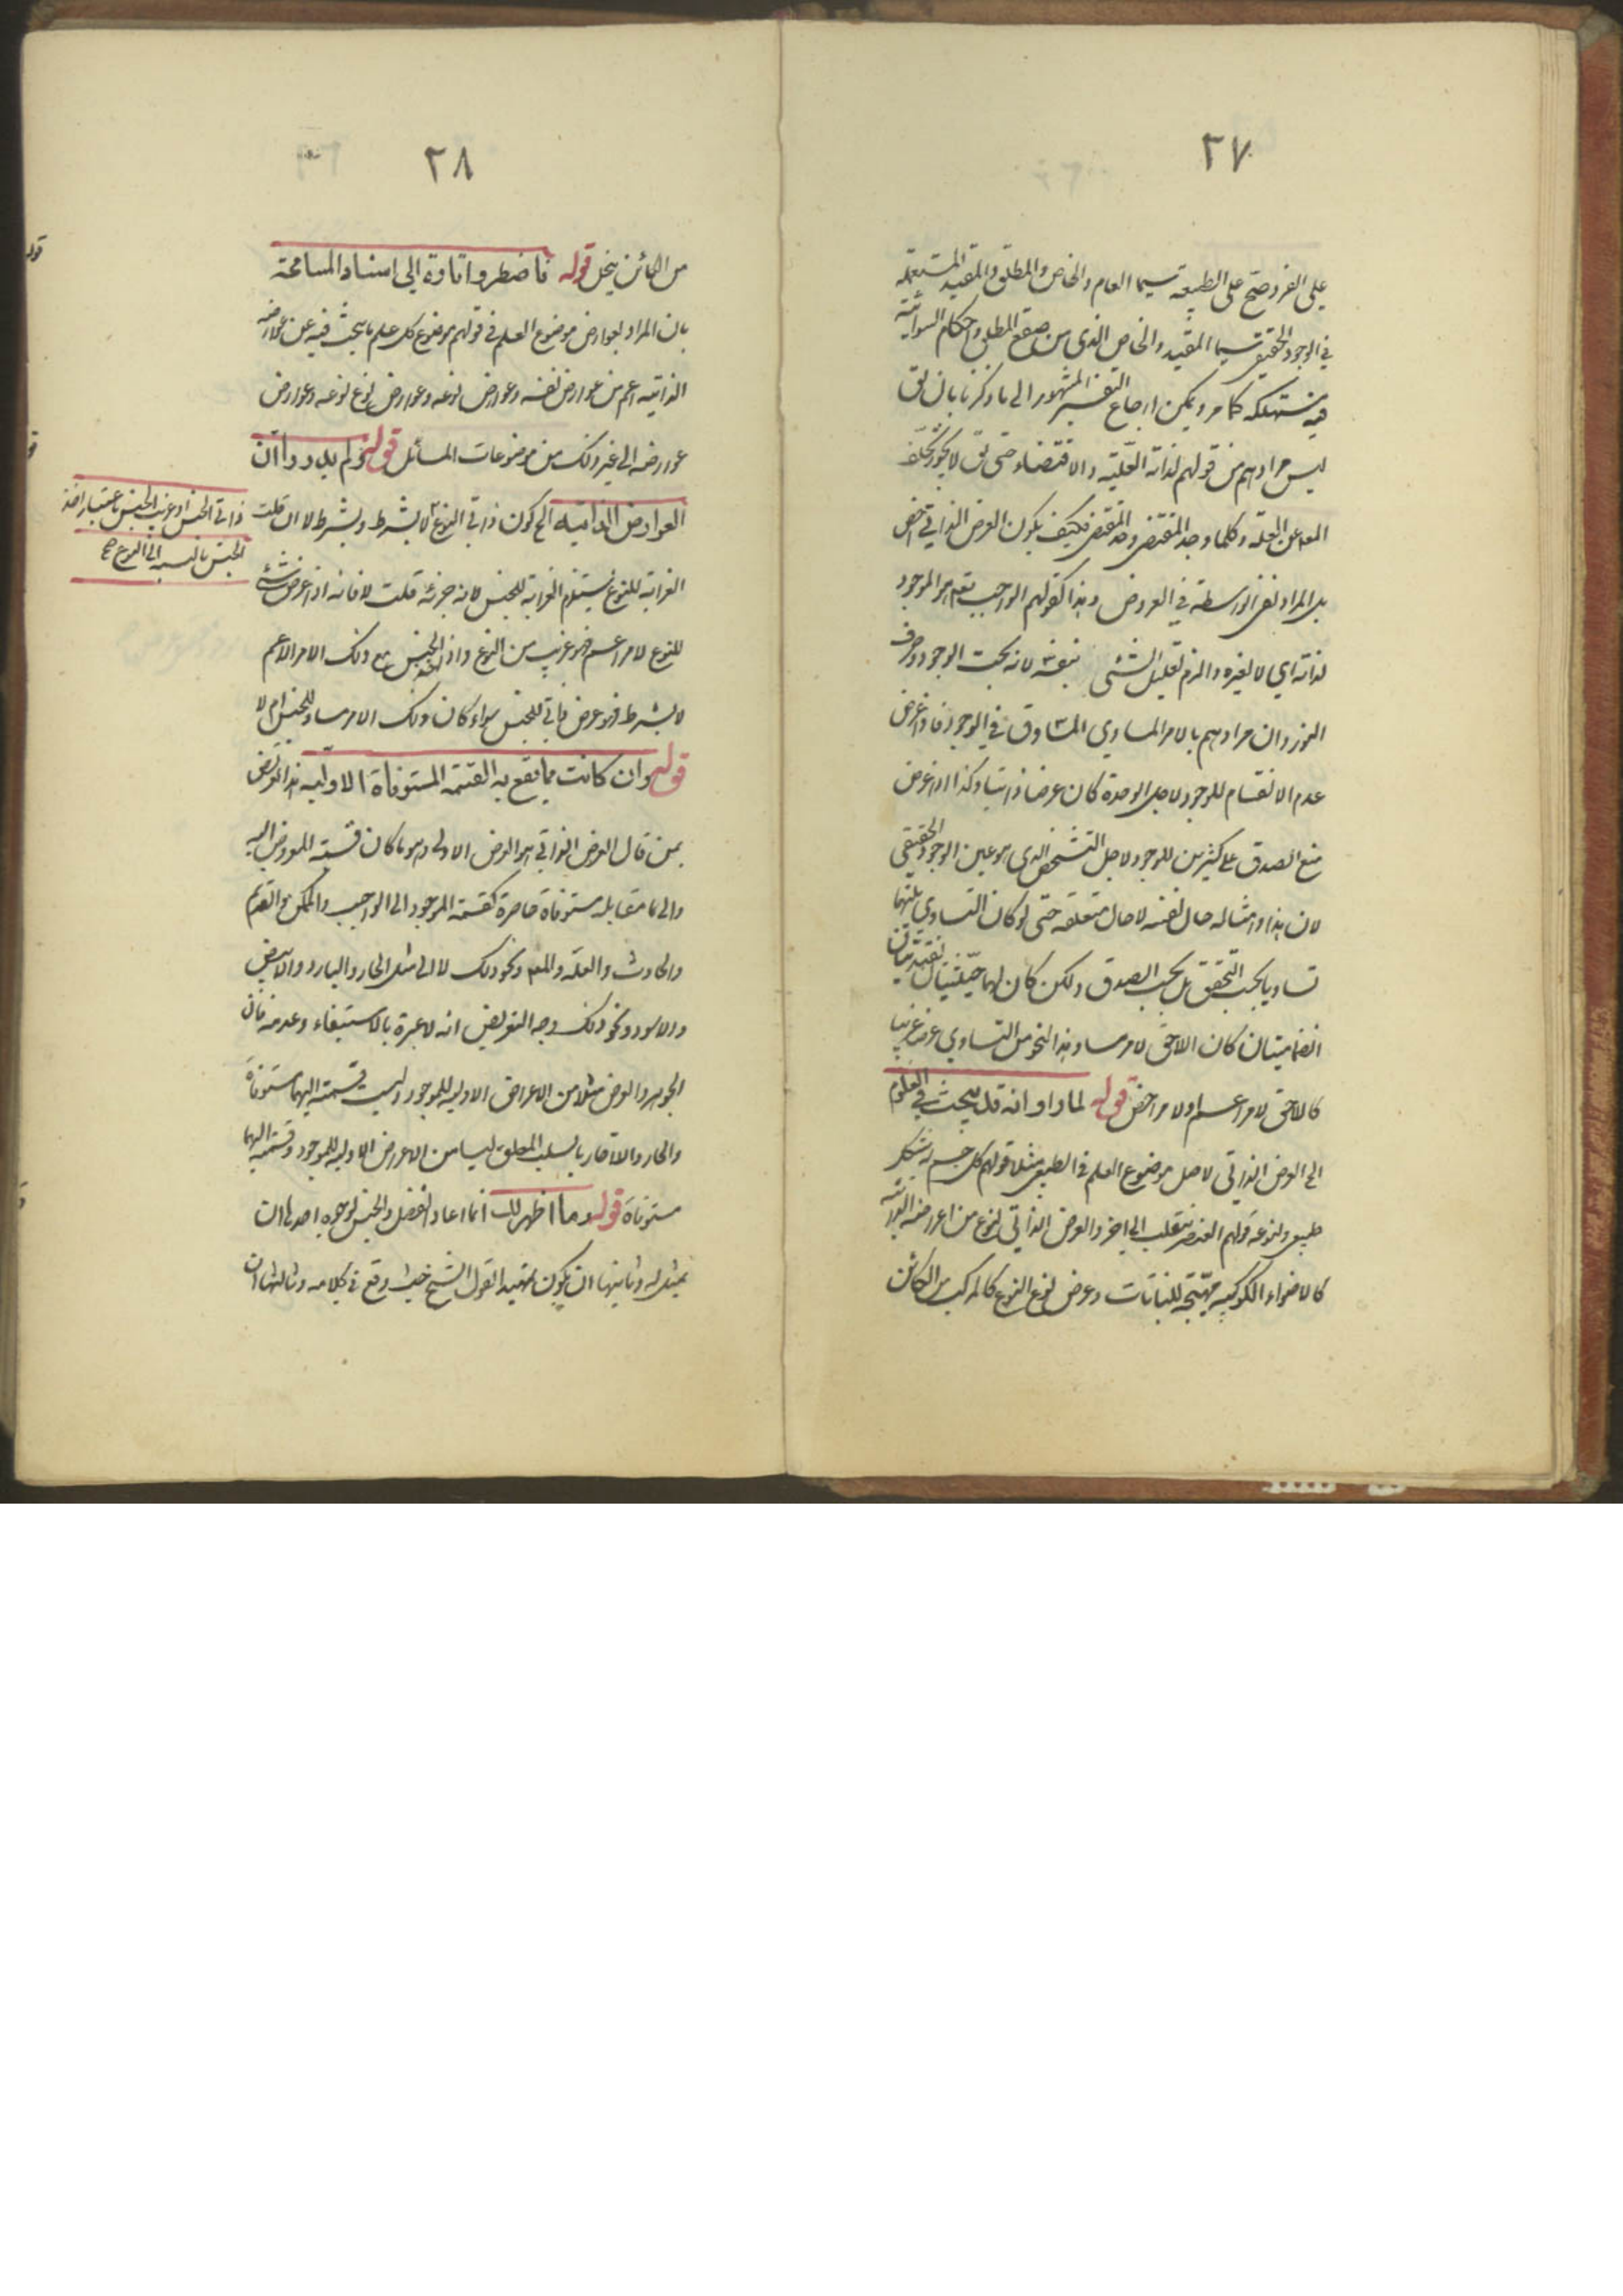 ٢٧
على الفرد صح على الطبيعة سيما العام والخاص والمطلق والمقيد المستعملة
في الوجود الحقيقي سيما المقيد والخاص الذي من صقع المطلق واحكام السوائية
فيه مستهلكه كما مر ويمكن ارجاع التفسير المشهور الى ما ذكرنا بان يق
ليس مرادهم من قولهم لذاته العلّية والاقتضاء حتى يق لا يجوز تخلف
المعلول عن العلة وكلما وجد المقتضي وجد المقتضى فكيف يكون العرض الذاتي اخص
بل المراد نفي الواسطة في العروض وهذا كقولهم الواجب تعم هو الموجود
لذاته اي لا لغيره والا لزم تعليل الشئ بنفسه لانه بحت الوجود وصرف
النور وان مرادهم بالامر المساوي المساوق في الوجود فاذا عرض
عدم الانقسام للوجود لاجل الوحدة كان عرضا ذاتيا وكذا اذا عرض
منع الصدق على كثيرين للوجود لاجل التشخص الذي هو عين الوجود الحقيقي
لان هذا وامثاله حال نفسه لا حال متعلقه حتى لو كان التساوي بينهما
تساويا بحسب التحقق بل بحسب الصدق ولكن كان لهما حيثيتان تقييديتان
انضماميتان كان اللاحق لامر مساو بهذا النحو من التساوي عرض غريبا
كاللاحق لامر اعم او لامر اخص قوله لما راوا انه قد يبحث في العلوم
الخ العرض الذاتي لاصل موضوع العلم في الطبيعي مثلا قولهم كل جسم له شكل
طبيعي ولنوعه قولهم العنصر ينقلب الى اخر والعرض الذاتي لنوع من اعراضه الذاتية
كالاضواء الكوكبية مهيّجة للنباتات وعرض لنوع النوع كالمركب من الكائن
٢٨
من الكائن ينحل قوله فاضطروا تارة الى اسناد المسامحة
بان المراد بعوارض موضوع العلم في قولهم موضوع كل علم ما يبحث فيه عن عوارضه
الذاتيه اعم من عوارض نفسه وعوارض نوعه وعوارض نوع نوعه وعوارض
عوارضه الى غير ذلك من موضوعات المسائل قوله ولم يدروا ان
العوارض الذاتيه الخ كون ذاتي النوع لا بشرط وبشرط لا ان قلت
ذاتي الجنس او غريب الجنس باعتبار اخذ
الجنس بالنسبه الى النوع صح
الغرابة للنوع يستلزم الغرابة للجنس لانه جزئه قلت لا فانه اذا عرض شئ
للنوع لامر اعم فهو غريب من النوع واذا اخذ الجنس مع ذلك الامر الاعم
لا بشرط فهو عرض ذاتي للجنس سواء كان ذلك الامر مساو للجنس ام لا
قوله وان كانت مما يقع به القسمة المستوفاة الاولية هذا تعريض
بمن قال العرض الذاتي هو العرض الاولى وهو ما كان قسمة المعروض اليه
والى ما يقابله مستوفاة حاصرة كقسمة الموجود الى الواجب والممكن والقديم
والحادث والعلّة والمعلول ونحو ذلك لا الى مثل الحار والبارد والابيض
والاسود ونحو ذلك وجه التعريض انه لا عبرة بالاستيفاء وعدمه فان
الجوهر والعرض مثلا من الاعراض الاولية للموجود وليست قسمته اليهما مستوفاة
والحار واللاحار بالسلب المطلق ليسا من الاعراض الاولية للموجود وقسمته اليهما
مستوفاة قوله وما اظهر لك انما اعاد الفصل والجنس لوجوه احدها ان
يمثل له وثانيها ان يكون تمهيدا لقول الشيخ حيث وقع في كلامه وثالثها ان